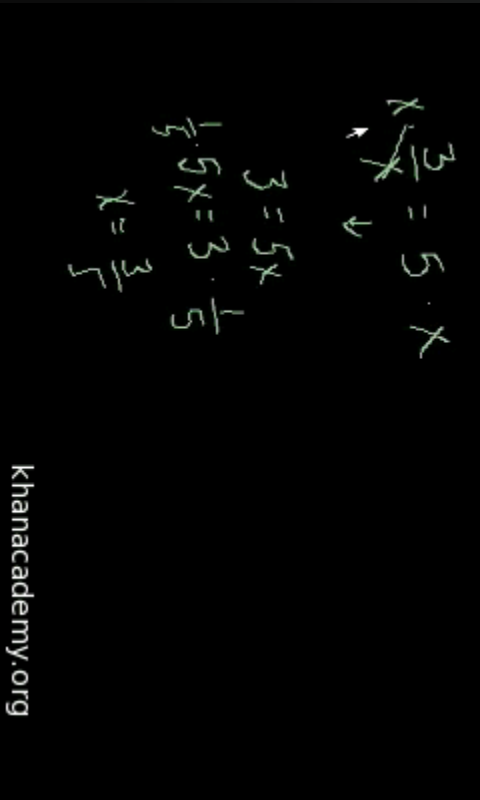 x · 3/x = 5 · x
←
3 = 5x
1/5 · 5x = 3 · 1/5
x = 3/
khanacademy.org